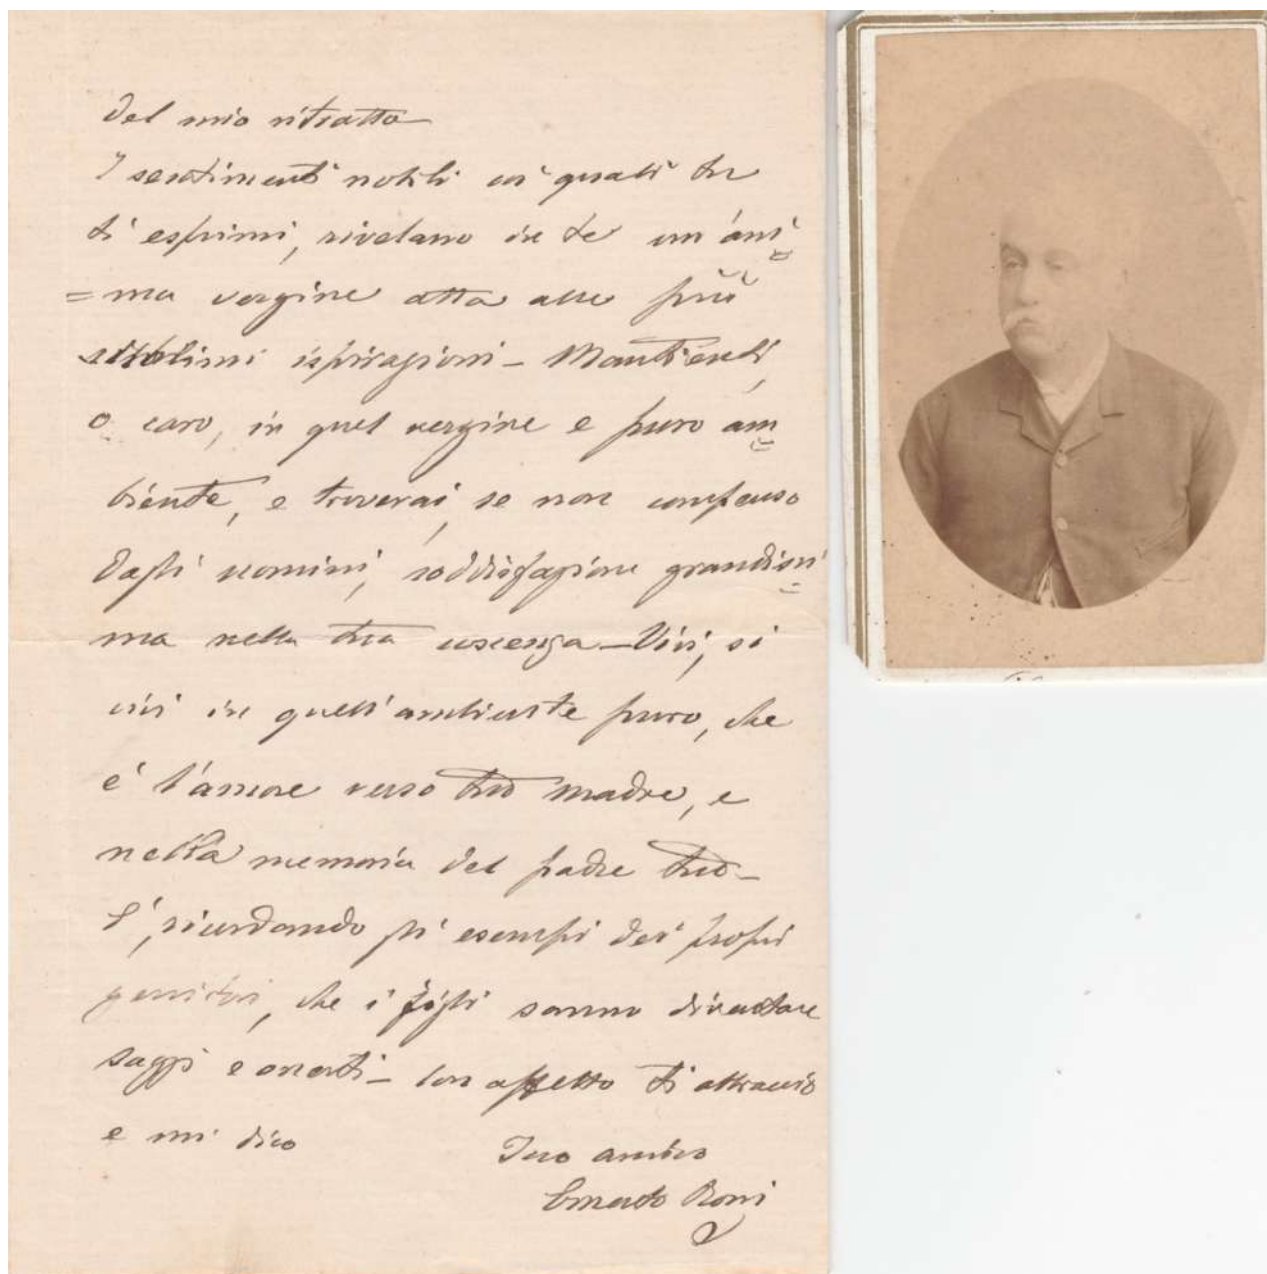 del mio ritratto
I sentimenti nobili coi quali tu
ti esprimi, rivelano in te un'ani
=ma vergine atta alle più
sublimi ispirazioni - Mantienti,
o caro, in quel vergine e puro am
biente, e troverai, se non compenso
dagli uomini, soddisfazione grandissi
ma nella tua coscenza - Vivi, si
vivi in quell'ambiente puro, che
è l'amore verso tua madre, e
nella memoria del padre tuo -
È, ricordando gli esempi dei propri
genitori, che i figli sanno diventare
saggi e onesti - Con affetto ti abbraccio
e mi dico
Tuo amico
Ernesto